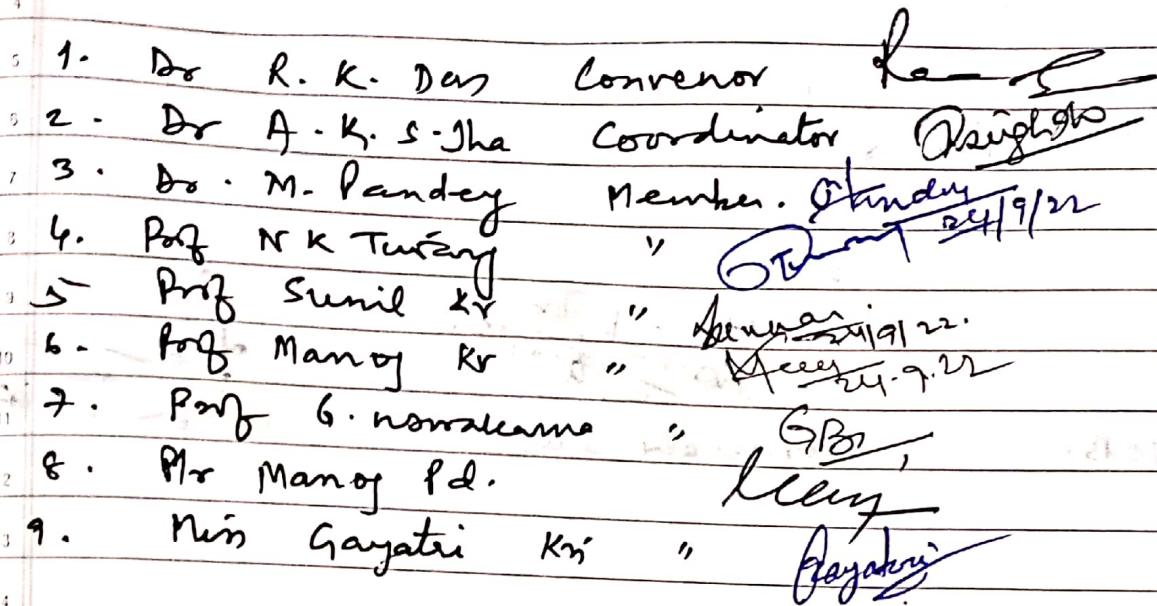 1. Dr R. K. Das Convenor
2. Dr A. K. S. Jha Coordinator
3. Dr. M. Pandey Member. 24/9/22
4. Prof N K "
5 Prof Sunil Kr " 24/9/22.
6. Prof Manoj Kr " 24.9.22
7. Prof G. "
8. Mr Manoj Pd.
9. Miss Gayatri Kri " Gayatri